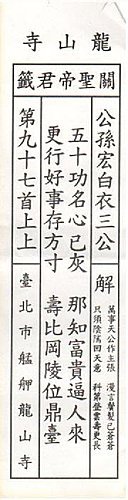 龍山寺
關聖帝君籤
公孫宏白衣三公
解
萬事天公作主張 漫言鬢髮已蒼蒼
只須陰隲回天意 科第登雲壽更長
五十功名心已灰 那知富貴逼人來
更行好事存方寸 壽比岡陵位鼎臺
第九十七首上上
臺北市艋舺龍山寺